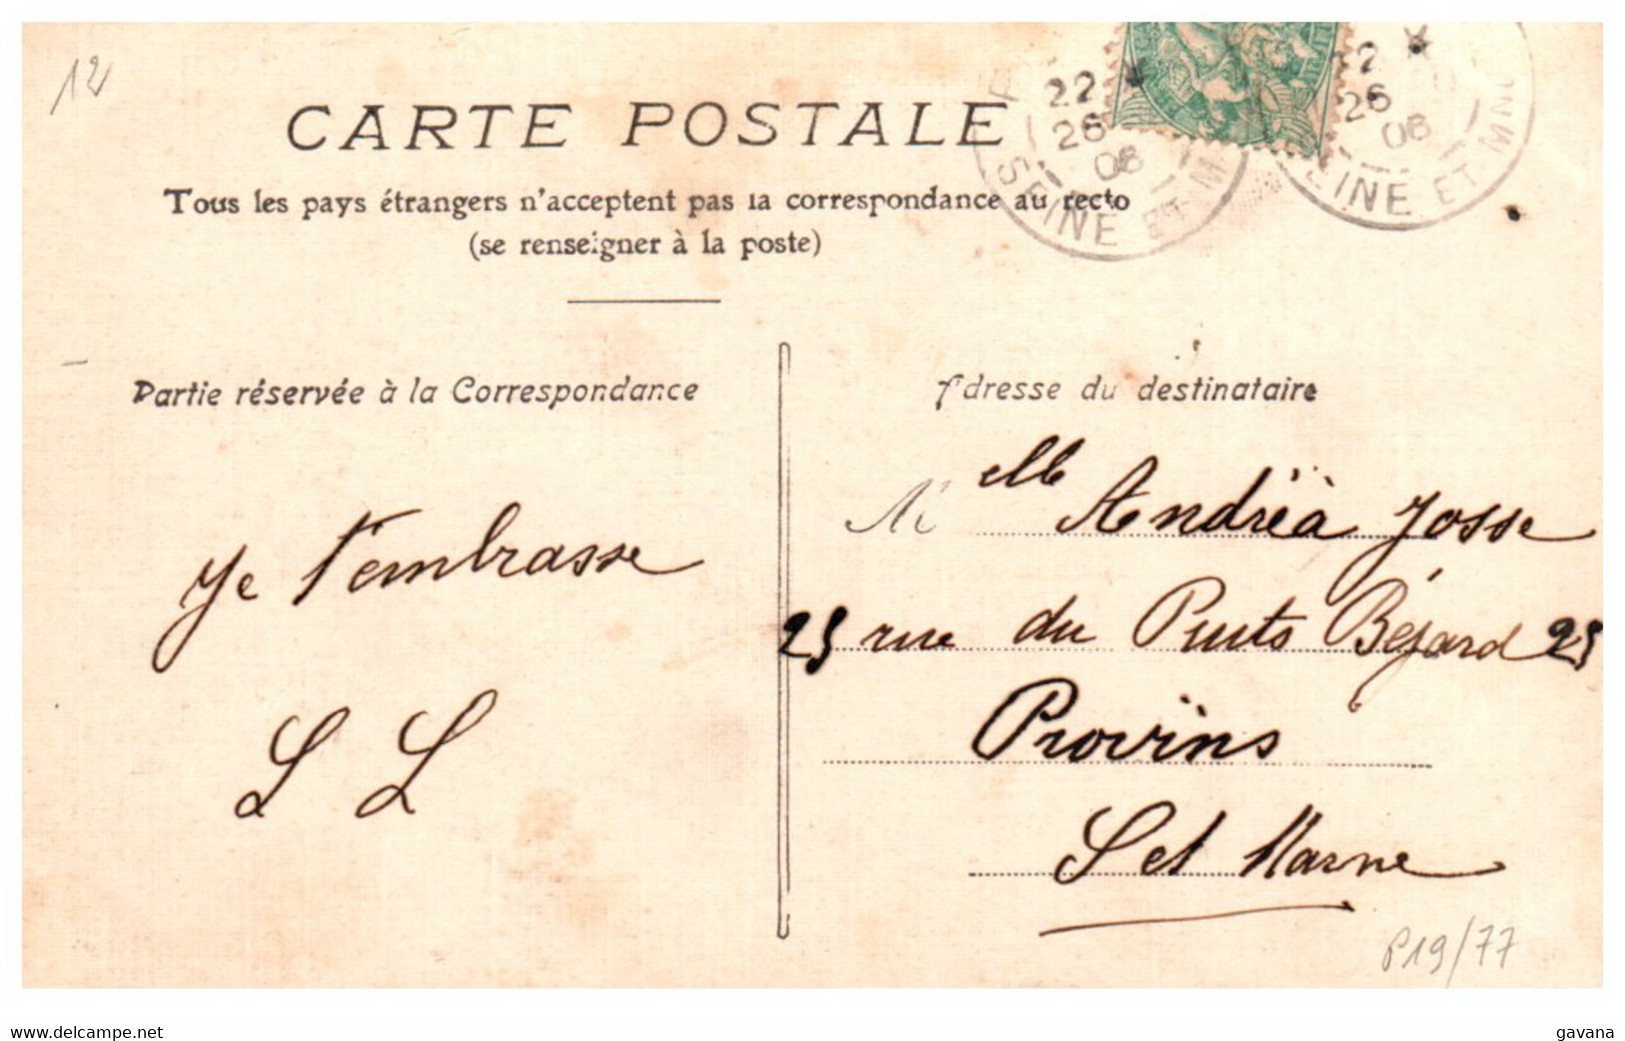 12
CARTE POSTALE
Tous les pays étrangers n'acceptent pas la correspondance au recto
(se renseigner à la poste)
22
26
08
SEINE ET M
26
08
EINE ET MNE
Partie réservée à la Correspondance
Adresse du destinataire
Je t'embrasse
L L
Melle Andréa Josse
25 rue du Puits Béjard 25
Provins
S et Marne
P19/77
www.delcampe.net
gavana